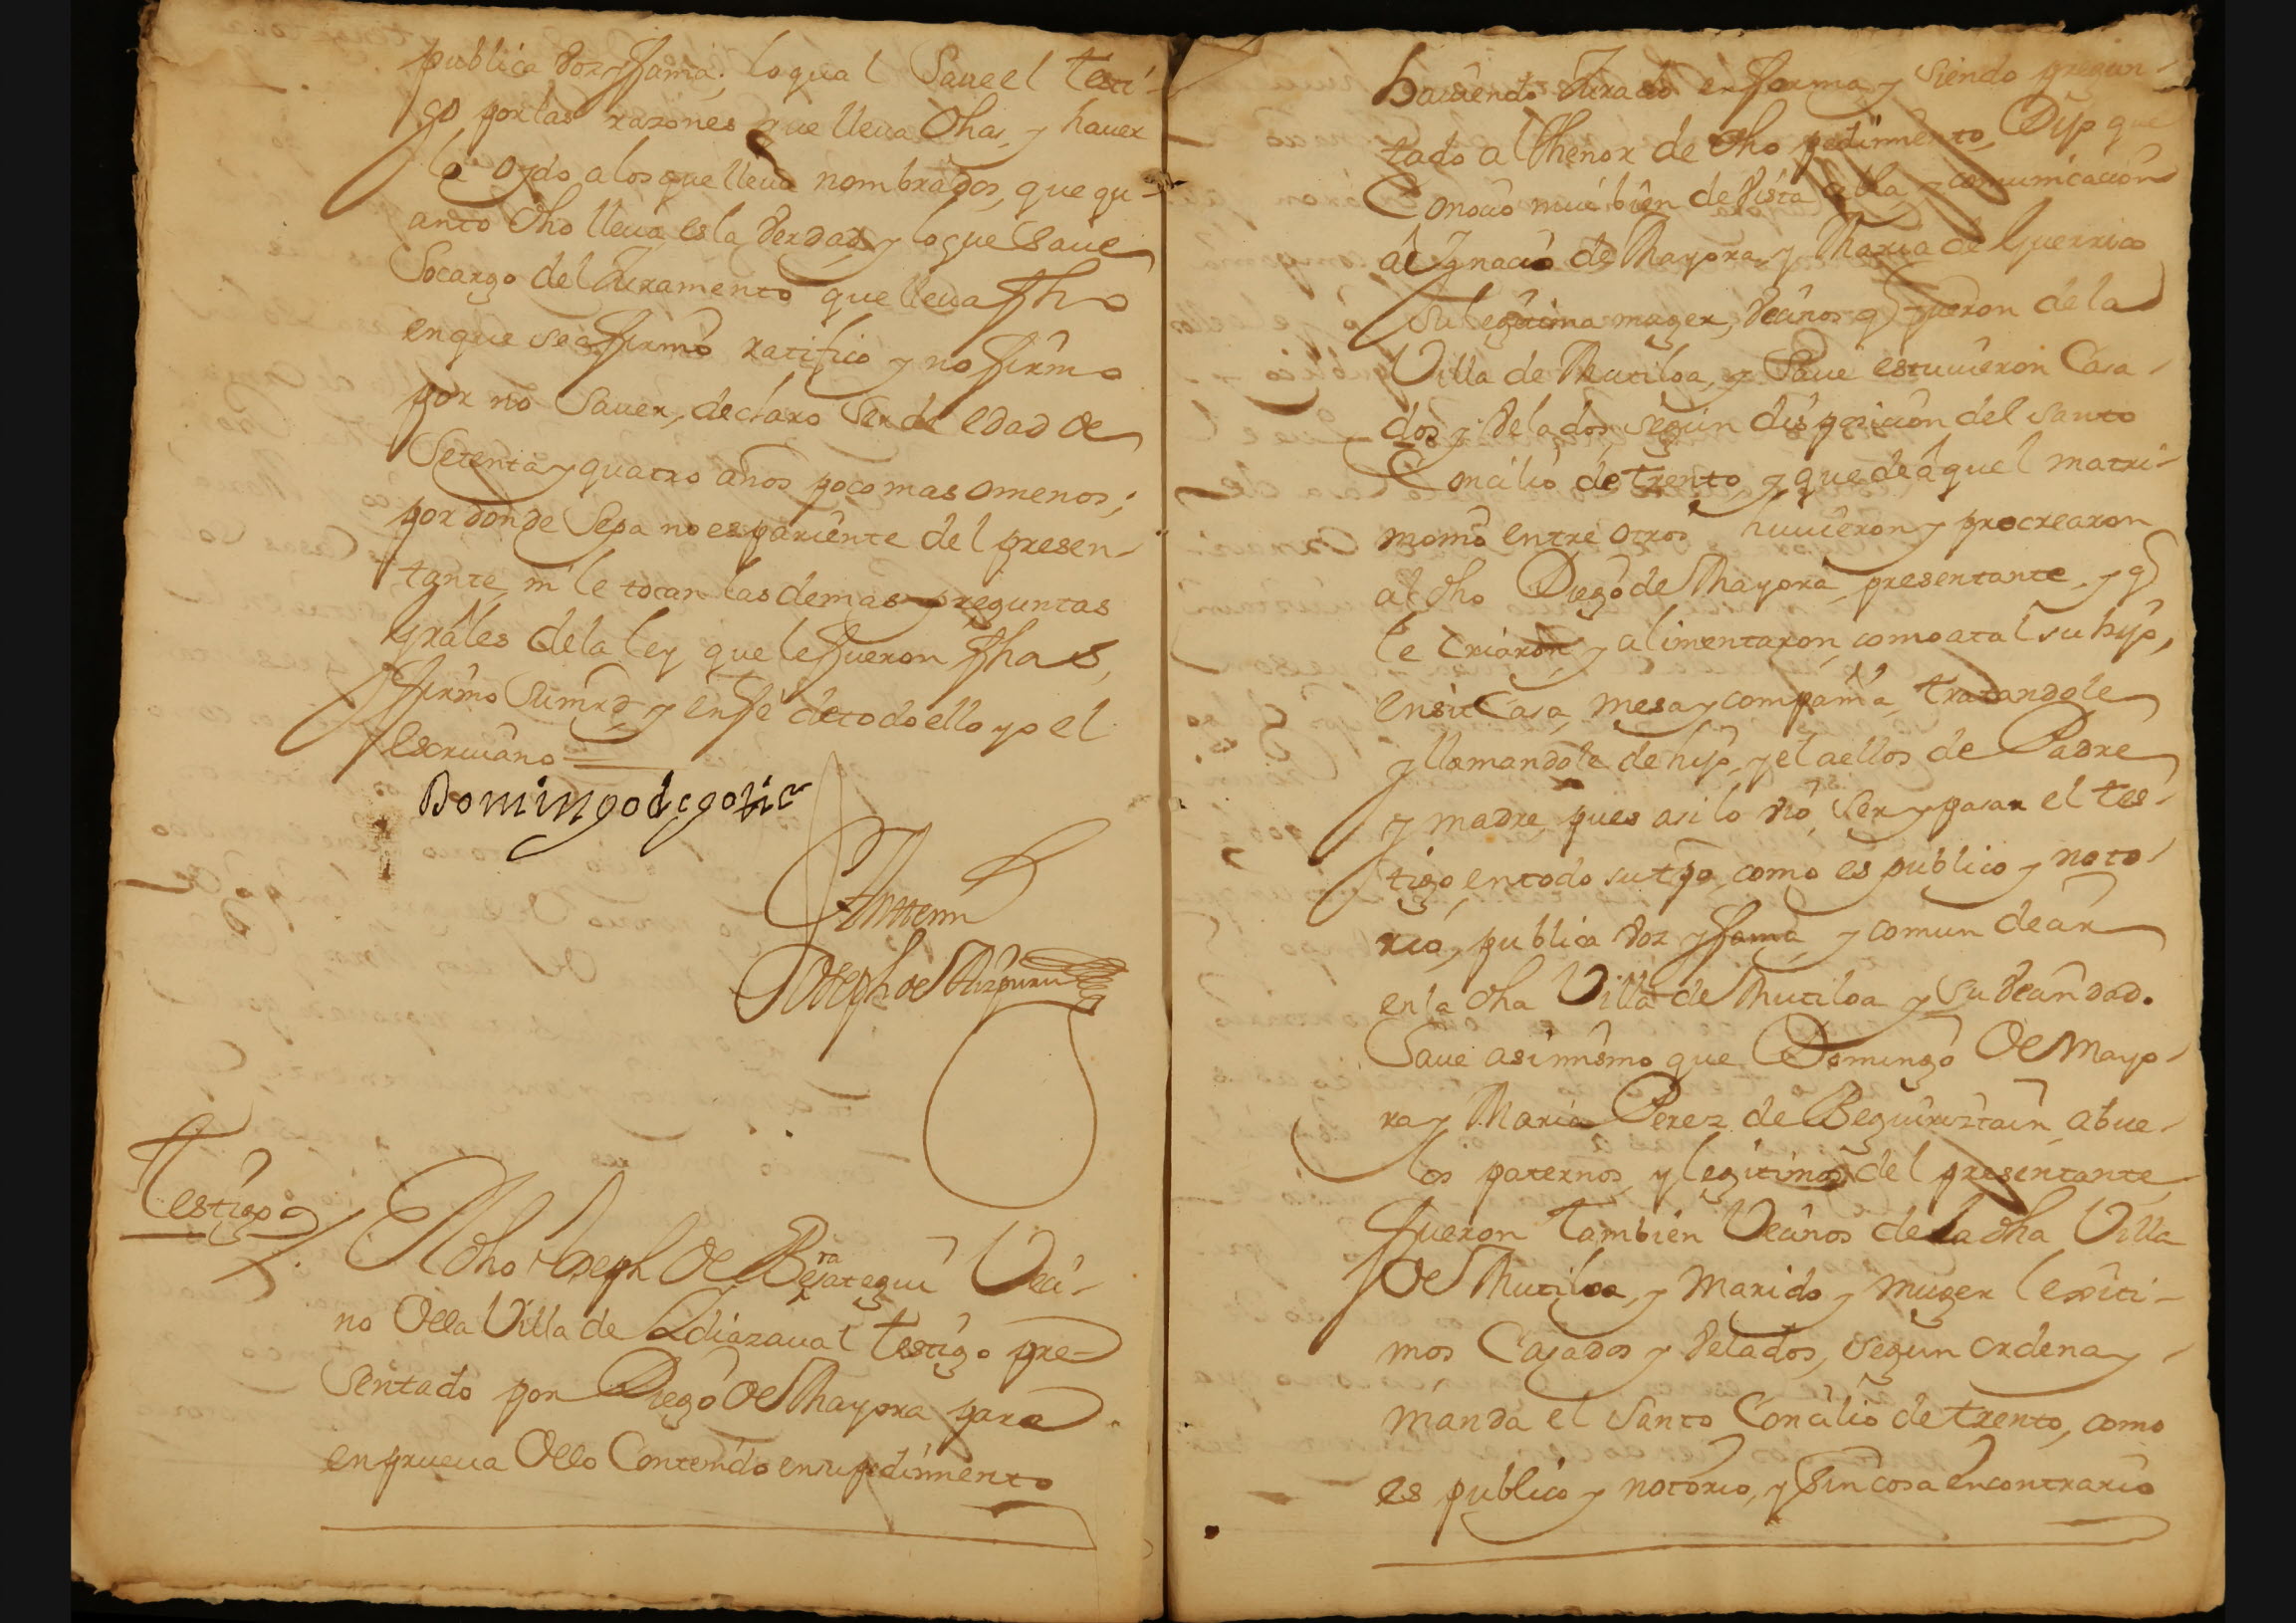 publica voz y fama, lo qual Save el testi-
go por las razones que lleva dhas, y haver
lo oydo a los que lleva nombrados, que qu-
anto dho lleva es la verdad, y lo que Save
Socargo del Juramento que lleva fho
en que se afirmò ratificò y no firmò
por no Saver, declarò Ser de edad de
Setenta y quatro años poco mas omenos;
por donde Sepa no es pariente del presen-
tante, ni le tocan las demas preguntas
gràles de la ley que le fueron fhas,
firmo Sumrd y en fè de todo ello yo el
escrivano
Domingo de goti
Antemi
Joseph de Aizpuru
Testigo
El dho Joseph de Berasategui Veci-
no de la Villa de Ydiazaval testigo pre-
sentado por Diego de Mayora para
en prueva de lo Contenido en su pedimiento
haviendo Jurado en forma, y siendo pregun-
tado al thenor de dho pedimiento, Dijo que
Conociò mui bien de vista abla, y comunicacion
âl Ygnacio de Mayora, y Maria de Guerrico
su legitima muger, vecinos q fueron de la
Villa de Mutiloa, y Save estuvieron Casa-
dos y velados, segun disposicion del santo
Concilio de trento, y que de âquel matri-
monio entre otros huvieron y procrearon
al dho Diego de Mayora, presentante, y q
le Criaron y alimentaron, como a tal su hijo,
en su Casa, mesa y compañia, tratandole
y llamandole de hijo, y el a ellos de Padre
y madre, pues asi lo viò, Ser y pasar el tes-
tigo en todo su tpo, como es publico y noto-
rio, publica voz y fama, y comun decir
en la dha Villa de Mutiloa y su vecindad.
Save asimismo que Domingo de Mayo-
ra y Maria Perez de Beguiristain, abue-
los paternos, y legitimos del presentante,
fueron tambien Vecinos de la dha Villa
de Mutiloa, y Marido y muger lexiti-
mos Casados y velados, segun ordena y
manda el santo Concilio de trento, como
es publico y notorio, y Sin cosa en contrario